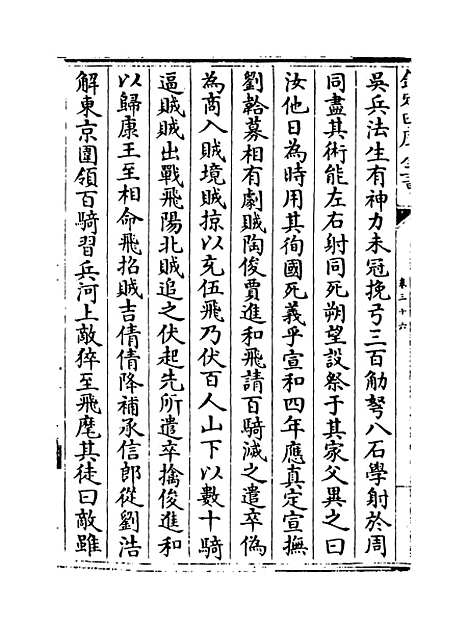 欽定四庫全書
卷三十六
吳兵法生有神力未冠挽弓三百觔弩八石學射於周
同盡其術能左右射同死朔望設祭于其家父異之曰
汝他日為時用其徇國死義乎宣和四年應真定宣撫
劉韐募相有劇賊陶俊賈進和飛請百騎滅之遣卒偽
為商入賊境賊掠以充伍飛乃伏百人山下以數十騎
逼賊賊出戰飛陽北賊追之伏起先所遣卒擒俊進和
以歸康王至相命飛招賊吉倩倩降補承信郎從劉浩
解東京圍領百騎習兵河上敵猝至飛麾其徒曰敵雖